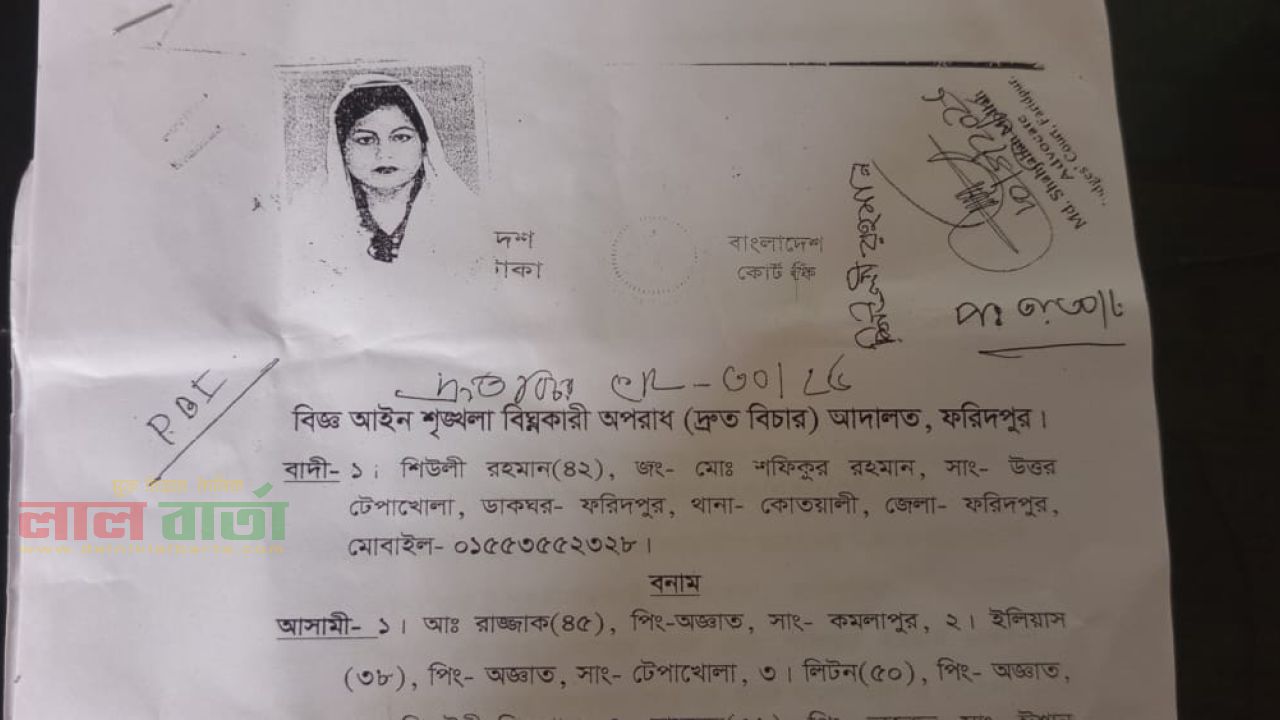 Md. Shahjahan
Advocate
Judges' Court, Faridpur.
দশ
টাকা
বাংলাদেশ
কোর্ট ফি
P.B.I
বিজ্ঞ আইন শৃঙ্খলা বিঘ্নকারী অপরাধ (দ্রুত বিচার) আদালত, ফরিদপুর।
বাদী- ১। শিউলী রহমান(৪২), জং- মোঃ শফিকুর রহমান, সাং- উত্তর
টেপাখোলা, ডাকঘর- ফরিদপুর, থানা- কোতয়ালী, জেলা- ফরিদপুর,
মোবাইল- ০১৫৫৩৫৫২৩২৮।
লাল বার্তা
বনাম
আসামী- ১। আঃ রাজ্জাক(৪৫), পিং-অজ্ঞাত, সাং- কমলাপুর, ২। ইলিয়াস
(৩৮), পিং- অজ্ঞাত, সাং- টেপাখোলা, ৩। লিটন(৫০), পিং- অজ্ঞাত,